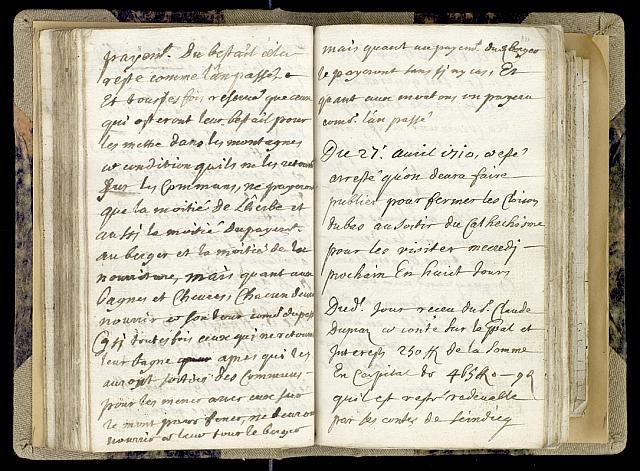 payem.t Du bestail et la
reste comme l'an passé. e
Et toutes fois reservé que ceux
qui osteront leur bestail pour
les mettre dans les montagnes
a condition quils ne les retournent
sur les Communs, ne payeront
que la moitié de L'herbe et
aussi la moitié du payem.t
au berger et la moitié de la
nourriture, mais quant aux
et Chevres, Chacun devra
nourir a son tour comd. du passé
toutes fois ceux qui ne retourn
leur apres qui les
auront sorties des Communs
pour les mener avec eux sur
le mont ne devront
nourrir a leur tour le berger
mais quant au payem.t du berger
le payeront sans Et
quant aux moutons on payera
comd. l'an passé
Du 27.e avril 1710, a esté
arresté qu'on devra faire
publier pour fermer les
du bas au sortir du Cathechisme
pour les visiter mecredj
prochain En huict Jours
Dud. Jour receu du S. Claude
a conte sur le et
Interests 250 ff de la Somme
En Capital de
qu'il est resté redevable
par ses contes de